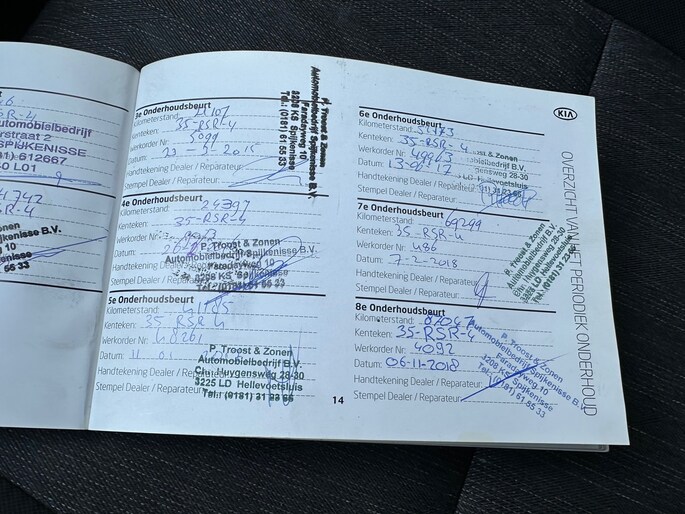 SR-4
utomobielbedrijf
rstraat 2
SPIJKENISSE
612667
LO1
7 742
SR-4
nen
ijkenisse B.V.
g 10
enisse
55 33
3e Onderhoudsbeurt
Kilometerstand:
Kenteken: 35-RSR-4
Werkorder Nr:
Datum: 2015
Handtekening Dealer / Reparateur:
Stempel Dealer / Reparateur:
P. Troost & Zonen
Automobielbedrijf Spijkenisse B.V.
Faradayweg 10
3208 KS Spijkenisse
Tel. (0181) 61 55 33
4e Onderhoudsbeurt
Kilometerstand: 24397
Kenteken: 35-RSR-4
Werkorder Nr:
Datum:
Handtekening Dealer / Reparateur:
Stempel Dealer / Reparateur:
P. Troost & Zonen
Automobielbedrijf Spijkenisse B.V.
Faradayweg 10
3208 KS Spijkenisse
Tel. (0181) 61 55 33
5e Onderhoudsbeurt
Kilometerstand: 41185
Kenteken: 35-RSR-4
Werkorder Nr: 48261
Datum: 11 01
Handtekening Dealer / Reparateur:
Stempel Dealer / Reparateur:
P. Troost & Zonen
Automobielbedrijf
Chr. Huygensweg 28-30
3225 LD Hellevoetsluis
Tel. (0181) 31 23 66
14
KIA
OVERZICHT VAN HET PERIODIEK ONDERHOUD
6e Onderhoudsbeurt
Kilometerstand:
Kenteken: 35-RSR-4
Werkorder Nr: 49963
Datum:
Handtekening Dealer / Reparateur:
Stempel Dealer / Reparateur:
st & Zonen
bielbedrijf B.V.
gensweg 28-30
Hellevoetsluis
7e Onderhoudsbeurt
Kilometerstand: 69299
Kenteken: 35-RSR-4
Werkorder Nr: 486
Datum: 7-2-2018
Handtekening Dealer / Reparateur:
Stempel Dealer / Reparateur:
P. Troost & Zonen
Automobielbedrijf B.V.
Chr. Huygensweg 28-30
3225 LD Hellevoetsluis
Tel. (0181) 31 23 66
8e Onderhoudsbeurt
Kilometerstand:
Kenteken: 35-RSR-4
Werkorder Nr: 4092
Datum: 06-11-2018
Handtekening Dealer / Reparateur:
Stempel Dealer / Reparateur:
P. Troost & Zonen
Automobielbedrijf Spijkenisse B.V.
Faradayweg 10
3208 KS Spijkenisse
Tel. (0181) 61 55 33